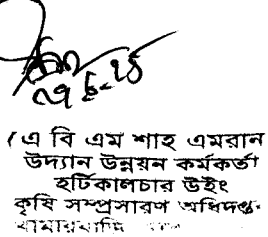 (এ বি এম শাহ এমরান
উদ্যান উন্নয়ন কর্মকর্তা
হর্টিকালচার উইং
কৃষি সম্প্রসারণ অধিদপ্ত
খামারবাড়ি